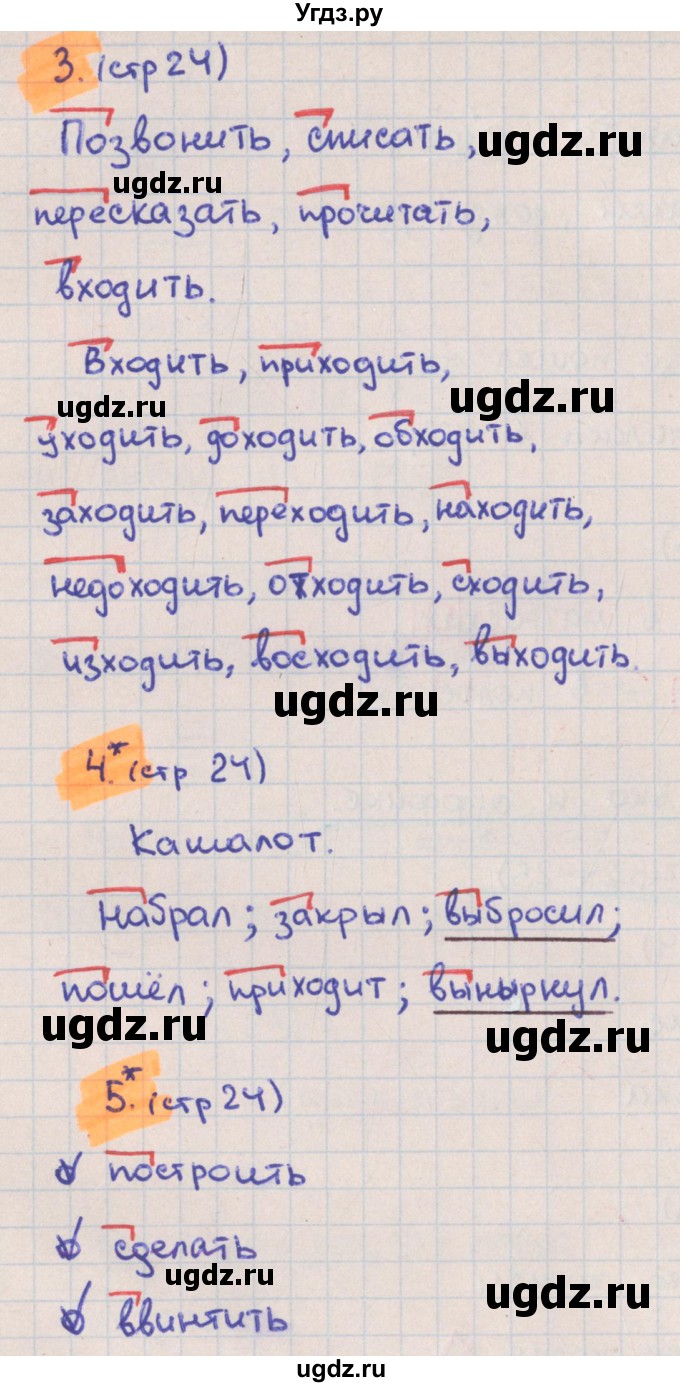 Угдз.ру
3. (стр 24)
Позвонить, списать, ugdz.ru
ugdz.ru
пересказать, прочитать,
входить.
Входить, приходить,
ugdz.ru ugdz.ru
уходить, доходить, обходить,
заходить, переходить, находить,
недоходить, отходить, сходить,
изходить, восходить, выходить.
ugdz.ru
4.* (стр 24)
Кашалот.
Набрал; закрыл; выбросил;
пошёл; приходит; вынырнул.
ugdz.ru ugdz.ru
5.* (стр 24)
построить
сделать
ugdz.ru ugdz.ru
ввинтить
ugdz.ru